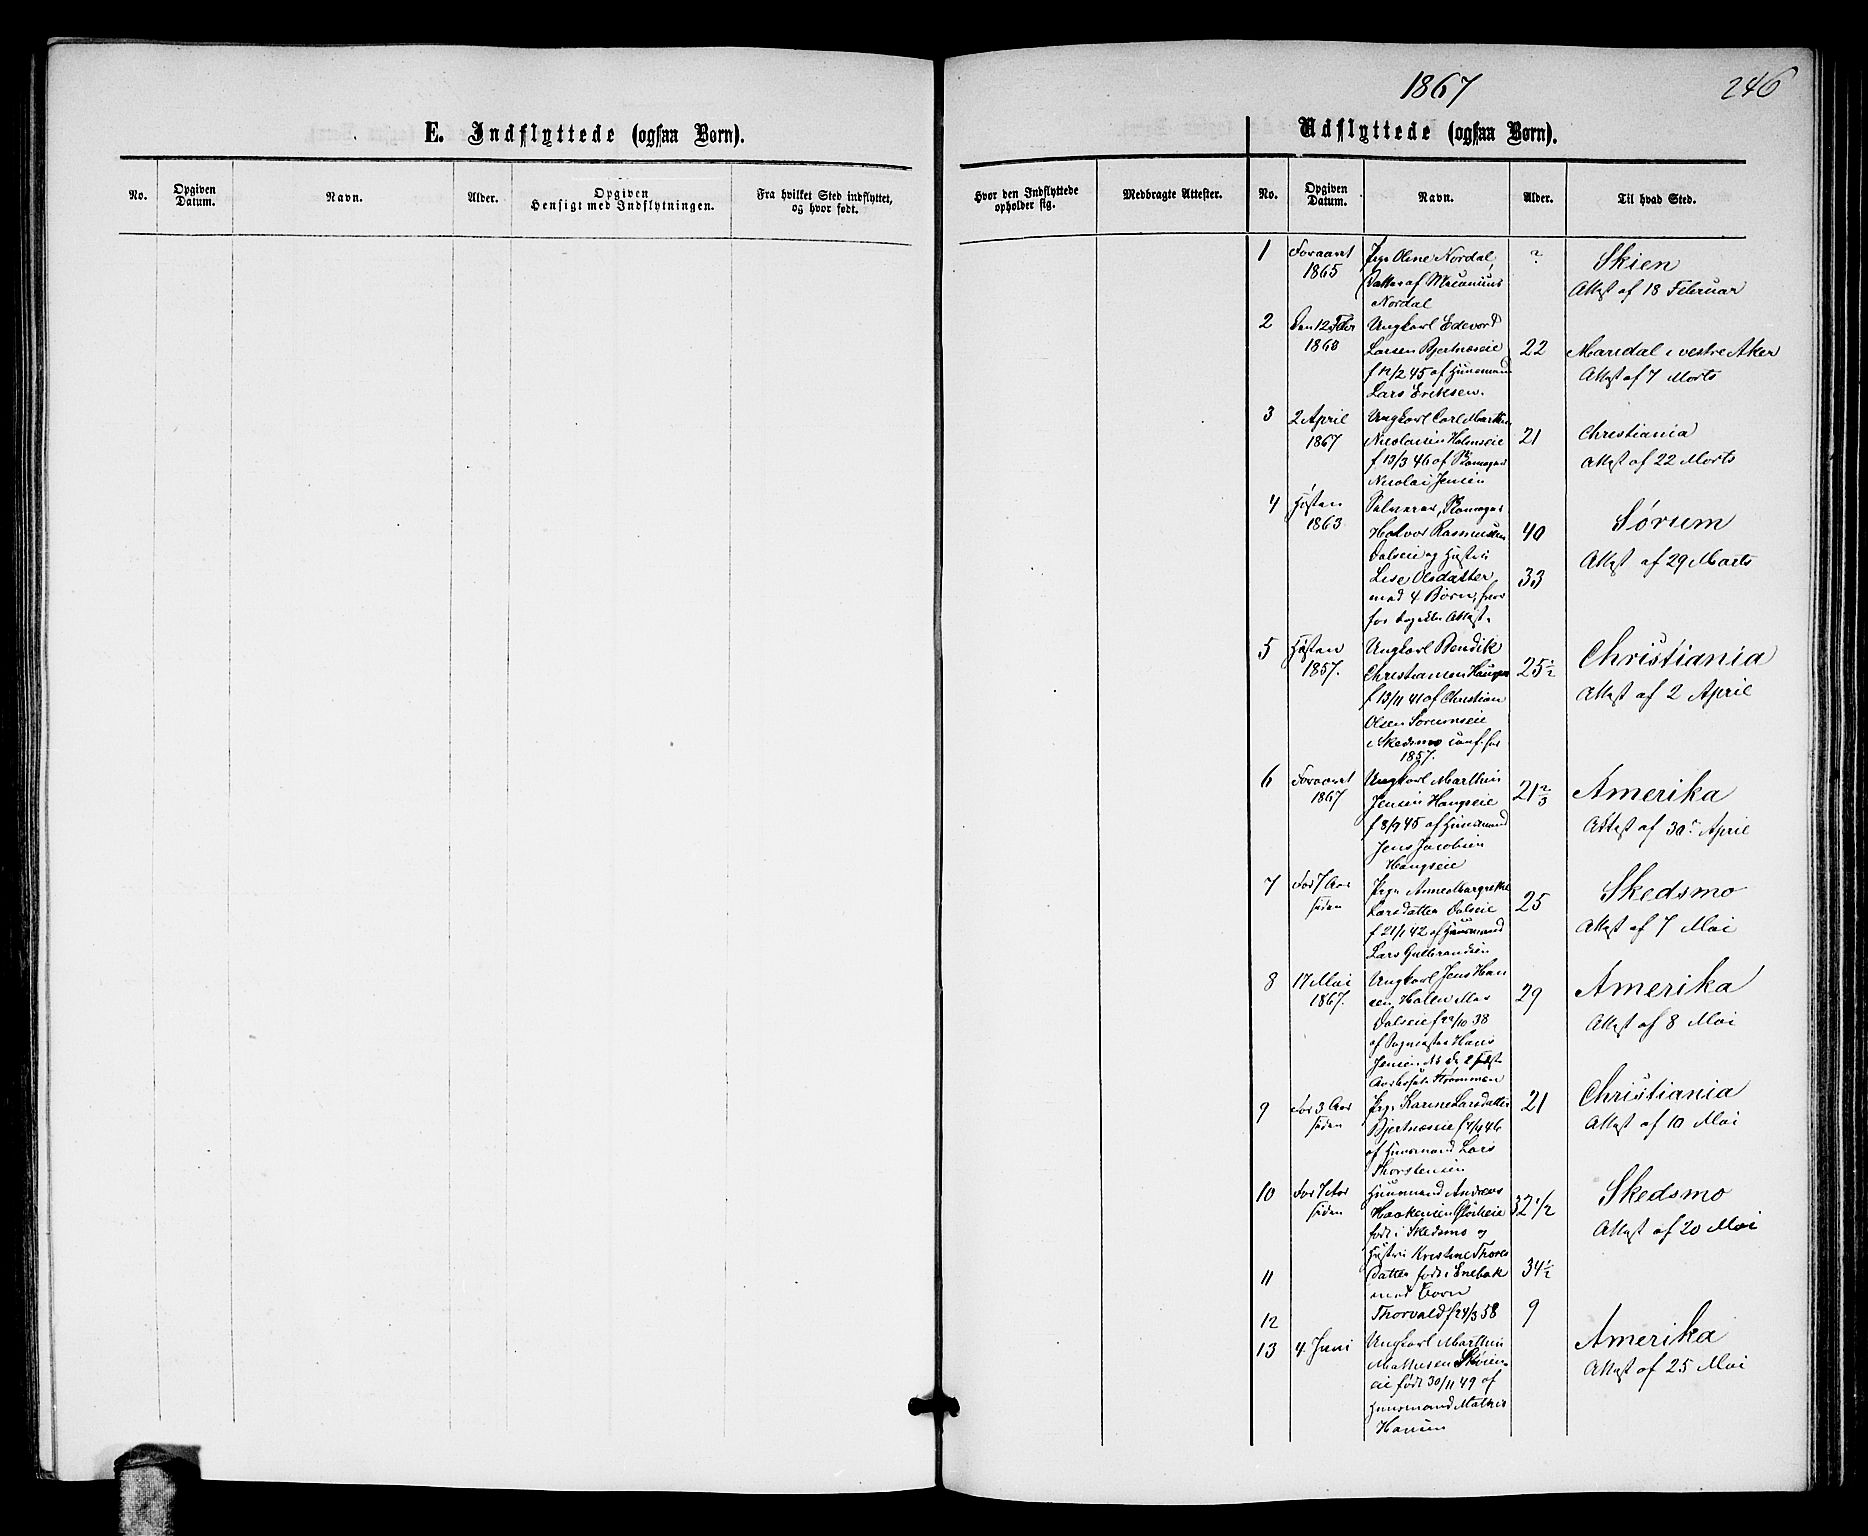 1867
246
E. Indflyttede (ogsaa Børn).
Udflyttede (ogsaa Børn).
No.
Opgiven Datum.
Navn.
Alder.
Opgiven Hensigt med Indflytningen.
Fra hvilket Sted indflyttet, og hvor født.
Hvor den Indflyttede opholder sig.
Medbragte Attester.
No.
Opgiven Datum.
Navn.
Alder.
Til hvad Sted.
1 Foraaret Pige Oline Nordal ? Skien
1865 Datter af Attest af 18 Februar
Nordal
2 Den 12 Febr Ungkarl Edevard
Larsen Bjertnæseie 22 Maredal i vestre Aker
f 12/2 45 af Huusmand Attest af 7 Marts
Lars Eriksen.
3 2 April Ungkarl Carl Marthin
1867 Nicolaisen Holmseie 21 Christiania
f 13/3 46 af Attest af 22 Marts
Nicolai Jensen
4 Høsten
1863 Halvor Rasmussen 40 Sørum
Dalseie og Hustru Attest af 29 Marts
Lise Olsdatter 33
med 4 Børn,
Attest.
5 Høsten Ungkarl Bendik
1857. Christiansen 25½ Christiania
f 13/11 41 af Christian Attest af 2 April
Olsen Sørumseie
i Skedsmo conf. her
1857.
6 Foraaret Ungkarl Marthin
1867 Jensen Haugseie 21⅔ Amerika
f 8/9 45 af Huusmand Attest af 30 April
Jens Jacobsen
Haugseie
7 For 7 Aar Pige Anne Margrethe Skedsmo
siden Larsdatter Dalseie 25
f 21/1 42 af Huusmand Attest af 7 Mai
Lars Gulbrandsen
8 17 Mai Ungkarl Jens Han Amerika
1867. sen Holen 29
Dalseie f 22/10 38 Attest af 8 Mai
af Hans
Jensen
Strømmen
9 For 3 Aar Pige Karine Larsdatter 21 Christiania
siden Bjertnæseie f 7/4 46 Attest af 10 Mai
af Huusmand Lars
Thorstensen
10 For 7 Aar Huusmand Andreas Skedsmo
siden Haakensen 32 1/2
født i Skedsmo og Attest af 20 Mai
Hustru Kristine Thores
11 datter født i Enebak 34½
med Børn
12 Thorvald f 24/3 58 9
13 4. Juni Ungkarl Marthin Amerika
Mathisen Skøien- Attest af 25 Mai
eie født 30/11 49 af
Huusmand Mathis
Hansen